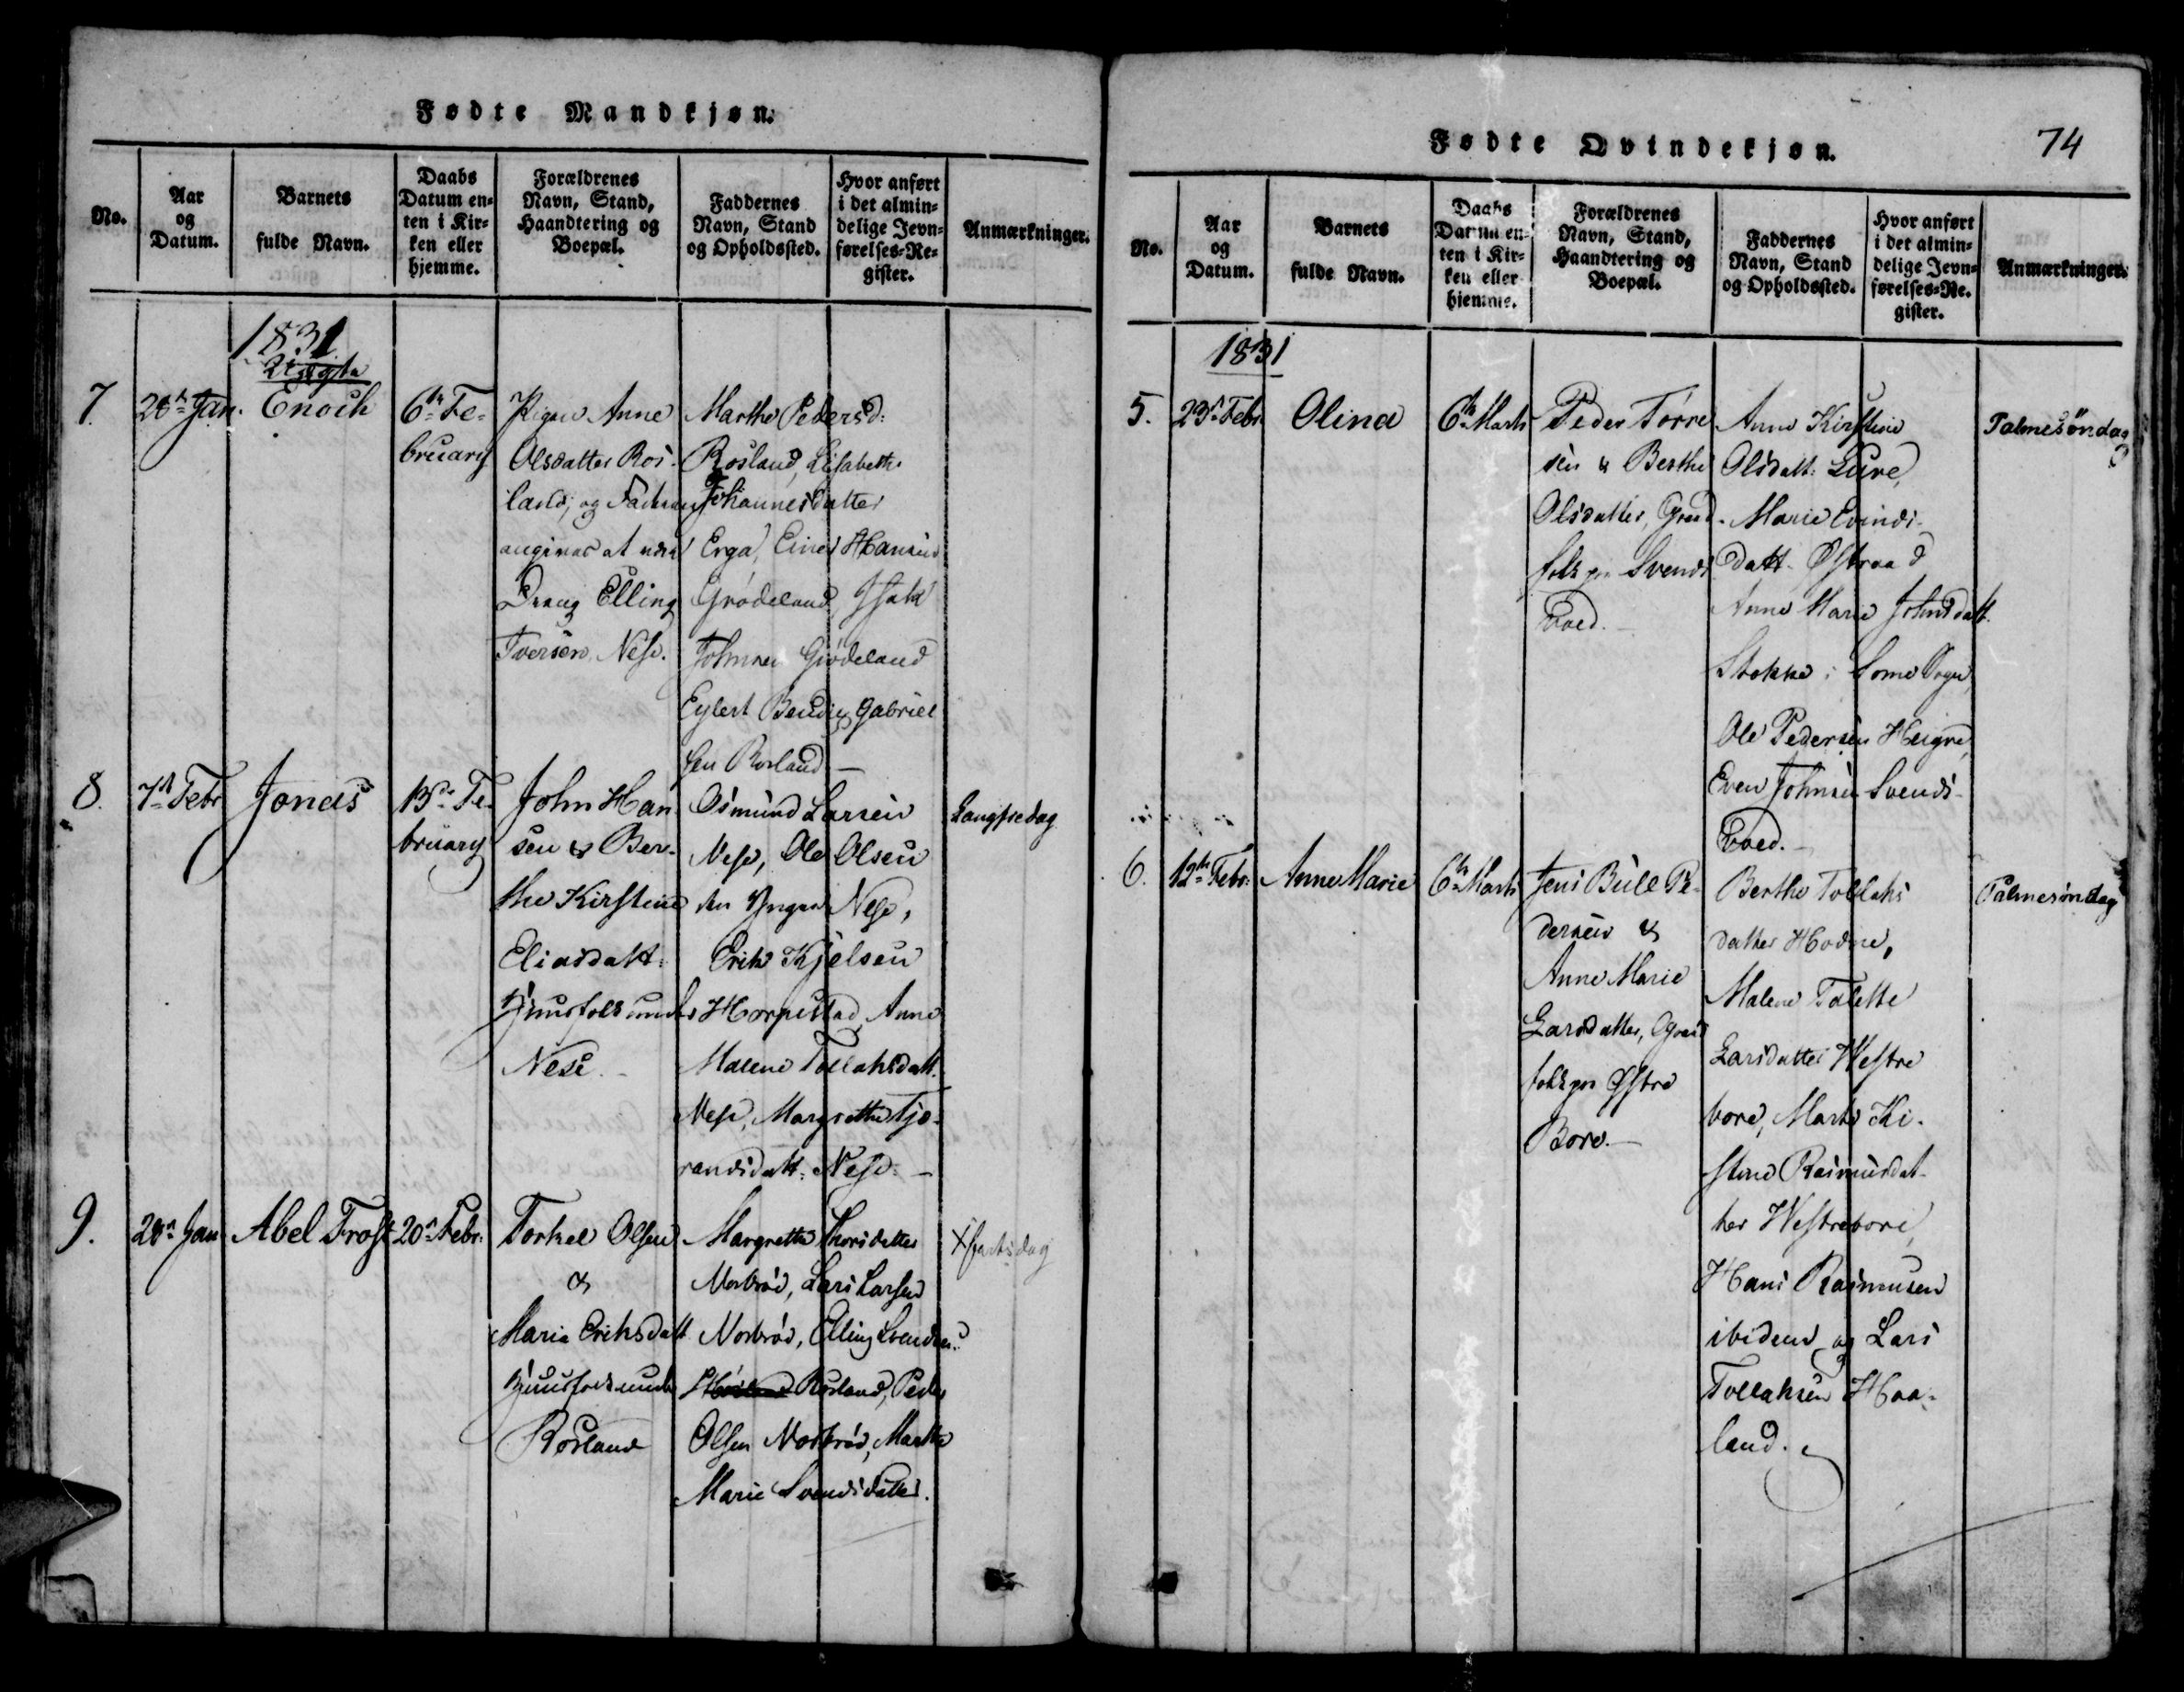 Fødte Mandkjøn.
No.
Aar
og
Datum.
Barnets
fulde Navn.
Daabs
Datum en-
ten i Kir-
ken eller
hjemme.
Forældrenes
Navn, Stand,
Haandtering og
Boepæl.
Faddernes
Navn, Stand
og Opholdssted.
Hvor anført
i det almin-
delige Jevn-
førelses-Re-
gister.
Anmærkninger.
1831
Uægte
7.
28de Jan.
Enoch
6te Fe-
bruary
Pigen Anne
Olsdatter Ros-
land, og Faderen
angives at være
Dreng Elling
Iversen Nese.
Marthe Pedersd:
Rosland, Lisabeth
Johannesdatter
Erga, Einer Hansen
Grödeland, Isak
Johnsen Grödeland
Eylert Bendix Gabriel
sen Rosland
8.
7de Febr
Jonas
13de Fe-
bruary
John Han
sen & Ber-
the Kirstine
Eliasdatt:
Huusfolk under
Nese.
Osmund Larsen
Nese, Ole Olsen
den Yngre Nese,
Erik Kjelsen
Horpestad, Anne
Malene Tollaksdatt.
Nese, Margrethe Tjo-
randsdatt: Nese.
Langfredag
9.
28de Jan
Abel Frost
20de Febr.
Torkel Olsen
&
Maria Eriksdatt
Huusfolk under
Rosland
Margrethe Thorsdatter
Norbrød, Lars Larsen
Norbrød, Elling Svendsen
Rosland, Peder
Olsen Norbrød, Marthe
Marie Svendsdatter.
Fødte Qvindekjøn.
74
No.
Aar
og
Datum.
Barnets
fulde Navn.
Daabs
Datum en-
ten i Kir-
ken eller
hjemme.
Forældrenes
Navn, Stand,
Haandtering og
Boepæl.
Faddernes
Navn, Stand
og Opholdssted.
Hvor anført
i det almin-
delige Jevn-
førelses-Re-
gister.
Anmærkninger.
1831
5.
23de Febr.
Olina
6te Marts
Peder Torre
sen & Berthe
Olsdatter, Graad-
folk paa Svends
Boed.
Anne Kirstine
Olsdatt: Lure,
Marie Evinds-
datt. Østraad
Anne Marie Johnsdatt.
Stokke i Some Sogn,
Ole Pedersen Heigre,
Even Johnsen Svends-
Boed.
Palmesöndag
6.
12te Febr:
Anne Marie
6te Marts
Jens Bull Pe-
dersen &
Anne Marie
Larsdatter, Graad
folk paa Østre
Bore.
Berthe Tollaks
datter Hodne,
Malene Talette
Larsdatter Westre
bore, Marte Ki-
stine Rasmusdat-
ter Westrebore,
Hans Rasmusen
ibidem, og Lars
Tollaksen Haa-
land.
Palmesöndag